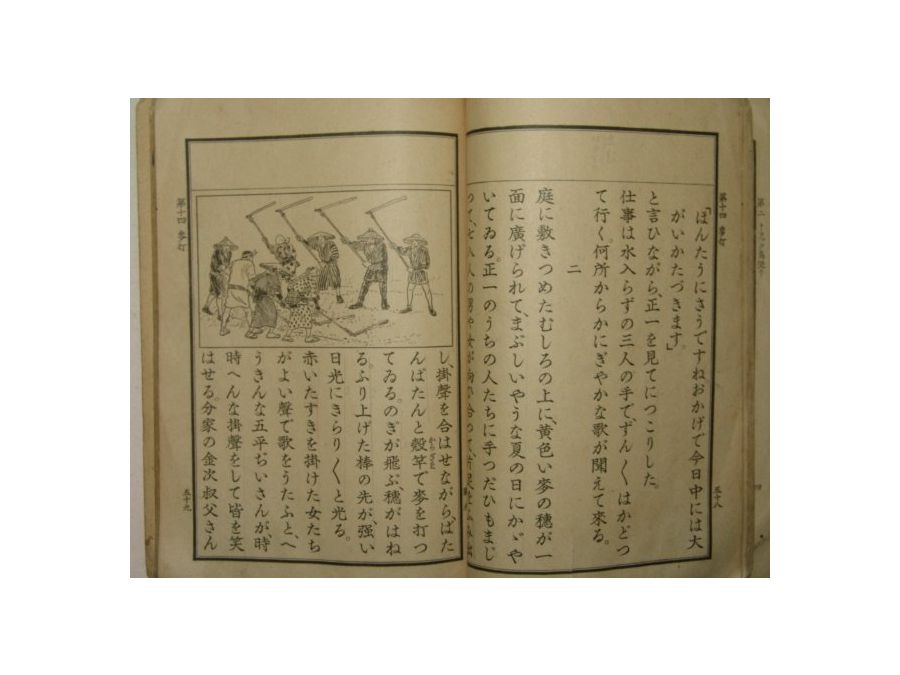 第十四 麥打
五十八
「ほんたうにさうですねおかげで今日中には大
がいかたづきます。」
と言ひながら、正一を見てにつこりした。
仕事は水入らずの三人の手で、ずん〳〵はかどつ
て行く。何所からかにぎやかな歌が聞えて來る。
二
庭に敷きつめたむしろの上に、黄色い麥の穗が一
面に廣げられて、まぶしいやうな夏の日にかゞや
いてゐる。正一のうちの人たちに手つだひもまじ
つて、人の男や女が向ひ合つて、
し、掛聲を合はせながら、ばた
んばたんと殻竿で麥を打つ
からざを
てゐる。のぎが飛ぶ、穗がはね
る。ふり上げた棒の先が、强い
日光にきらり〳〵と光る。
赤いたすきを掛けた女たち
がよい聲で歌をうたふと、へ
うきんな五平ぢいさんが、時
時へんな掛聲をして皆を笑
はせる。分家の金次叔父さん
第十四 麥打
五十九